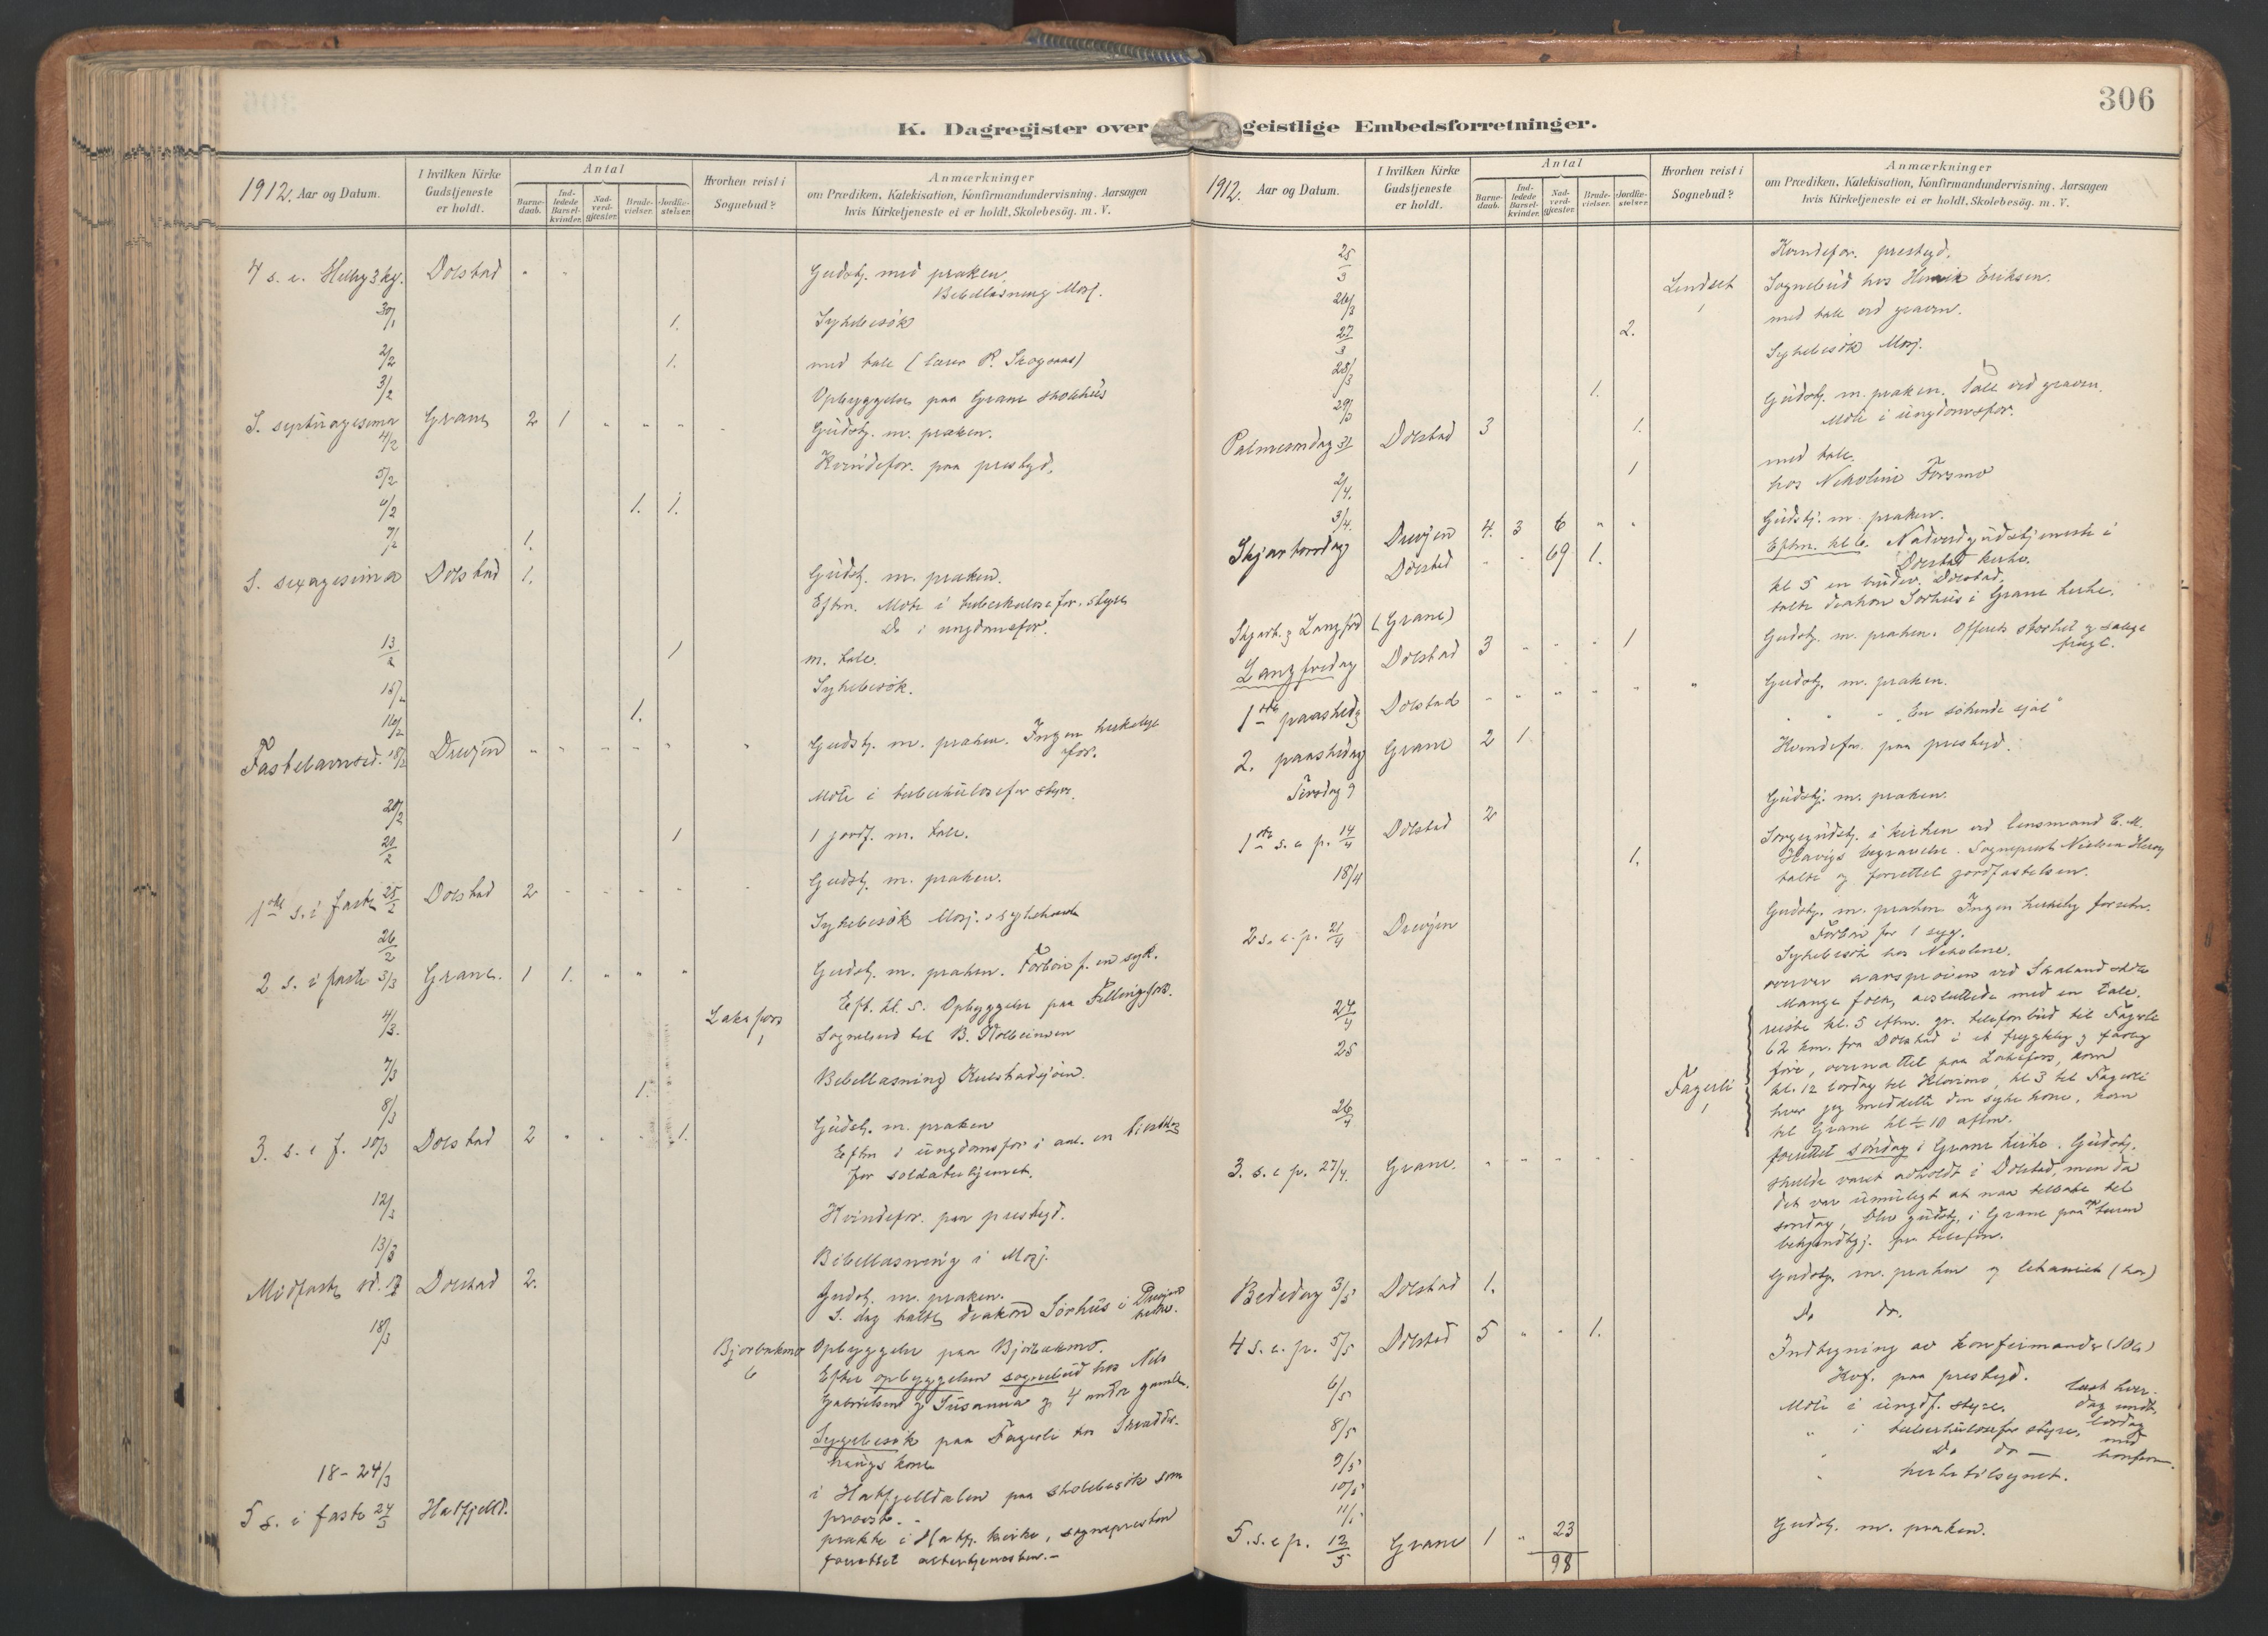 306
K. Dagregister over geistlige Embedsforretninger.
1912. Aar og Datum.
I hvilken Kirke Gudstjeneste er holdt.
Antal
Barne-daab.
Ind-ledede Barsel-kvinder.
Nad-verd-gjæster.
Brude-vielser.
Jordfæ-stelser.
Hvorhen reist i Sognebud?
Anmærkninger
om Prædiken, Katekisation, Konfirmandundervisning. Aarsagen
hvis Kirketjeneste ei er holdt, Skolebesög. m. V.
4 s. e. Helby 3 kg. Dolstad " " Gudstj. med præken.
Bibellæsning Mosj.
30/1 1. Sykebesök
2/2 1. med tale (lærer P. Skogaas)
3/2 Opbyggelse paa Grane skolehus
S. septuagesima 4/2 Grane 2 1 " " " " Gudstj. m. præken.
5/2 Kvindefor. paa prestegd.
6/2 1. 1.
7/2 1.
S. sexagesima Dolstad 1. Gudstj. m. præken.
Eftm. Möte i tuberkulosefor. styre
Do i ungdomsfor.
13/2 1 m. tale.
15/2 Sykebesök.
16/2 1.
Fastelavnsd. 18/2 Drevjen " " " " " " Gudstj. m. præken. Ingen kirkelige
for.
20/2 Möte i tuberkulosefor styre.
21/2 1 1 jordf. m. tale.
1ste s. i faste 25/2 Dolstad 2 " " " " " Gudstj. m. præken.
26/2 Sykebesök Mosj.
2 s. i faste 3/3 Grane. 1 1. " " " Gudstj. m. præken. Forbön f. en syk.
Eft. kl. 5. Opbyggelse paa Fellingfors.
4/3. Laksfors 1 Sognebud til B.
7/3 Bibellæsning Kulstadsjöen.
8/3 1.
3. s. i f. 10/3 Dolstad 2 " " " 1. Gudstj. m. præken
Eftm i ungdomsfor i anl. en
for soldaterhjemet.
12/3 Kvindefor. paa prestegd.
13/3 Bibellæsning i Mosj.
Midfaste sd. 17/3 Dolstad 2. Gudstj. m. præken.
I dag talte diakon Sörhus i Drevjens
kirke.
18/3 Bjørbækmo 6 Opbyggelse paa Bjørbækmo.
Efter opbyggelsen sognebud hos Nils
Gabrielsen og Susanna og 4 andre gamle.
Sygebesök paa Fagerli hos
kone
18-24/3 i Hatfjelldalen paa skolebesök som
provst. -
5 s. i faste 24/3 Hatfjelld. prækte i Hatfj. kirke, sognepresten
forrettet altertjenesten. -
1912. Aar og Datum.
I hvilken Kirke Gudstjeneste er holdt.
Antal
Barne-daab.
Ind-ledede Barsel-kvinder.
Nad-verd-gjæster.
Brude-vielser.
Jordfæ-stelser.
Hvorhen reist i Sognebud?
Anmærkninger
om Prædiken, Katekisation, Konfirmandundervisning. Aarsagen
hvis Kirketjeneste ei er holdt, Skolebesög. m. V.
25/3 Kvindefor. prestegd.
26/3 Lindset 1 Sognebud hos Henrik Eriksen.
27/3 2. med tale ved graven.
28/3 Sykebesök Mosj.
29/3 1.
Palmesöndag 31/3 Dolstad 3 1. Gudstj. m. præken. Tale ved graven.
Möte i ungdomsfor.
2/4. 1 med tale.
3/4. hos Nikoline Forsmo
Skjærtorsdag Drevjen 4. 3 6 " " Gudstj. m. præken.
Dolstad " " 69 1. Eftm. kl 6. Nadverdgudstjeneste i
Dolstad kirke.
kl 5 en brudev. Dolstad.
Skjært. og Langfred (Grane) talte diakon Sörhus i Grane kirke.
Langfredag Dolstad 3 " " " 1 Gudstj. m. præken. Offerets storhet og salige
frugt.
1ste paaskedg Dolstad " " " " " " Gudstj. m. præken.
2. paaskedag Grane 2 1 " " " "En sökende sjæl"
Tirsdag 9 Kvindefor. paa prestegd.
1ste s. e p. 14/4 Dolstad 2 Gudstj. m. præken.
18/4 1. Sørgegudstj. i kirken ved lensmand E. M.
Havigs begravelse. Sogneprest Nielsen Heröy
talte og forrettet jordfæstelsen.
2 s. e. p. 21/4 Drevjen Gudstj. m. præken Ingen kirkelig forretn.
Forbön for 1 syg.
Sykebesök hos Nikoline.
24/4 overvar aarsprøven ved Skaland skole
Mange folk, avsluttede med en tale.
25 reiste kl. 5 eftm. gr. telefonbud til Fagerli
62 km. fra Dolstad i et tryggelig og farlig
före, overnattet paa Laksfors, kom
26/4 Fagerli 1 kl. 12 lördag til Klovimo, kl 3 til Fagerli
hvor jeg meddelte den syke kone, kom
til Grane kl ½ 10 aften.
3. s. e p. 27/4. Grane. " " " " " forrettet söndag i Grane kirke. Gudstj.
skulde været avholdt i Dolstad, men da
det var umuligt at naa tilbake til
söndag, blev gudstj. i Grane paa
bekjendtgj. pr telefon.
Bededag 3/5 Dolstad 1. Gudstj. m. præken og litaniet (kor)
4 s. e. p. 5/5 Dolstad 5 " " 1. Do do.
6/5 Indtegning av konfirmander (106)
Kvf. paa prestegd.
8/5 Möte i ungdf. styre.
9/5 " i tuberkulosefor styre,
10/5 " Do do —
11/5 " kirketilsynet.
læst hver-
dag undt.
lördag
med
konfirm.
5. s. e p. 12/5 Grane 1 " 23 Gudstj. m. præken.
98